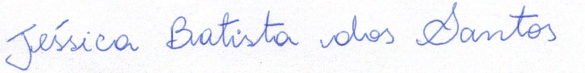 Jéssica Batista dos Santos